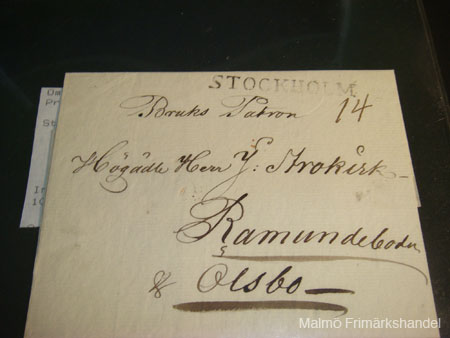 STOCKHOLM
Bruks Patron 14
Högädle Herr Y: Strokirk
Ramundeboda
& Olsbo
Malmö Frimärkshandel